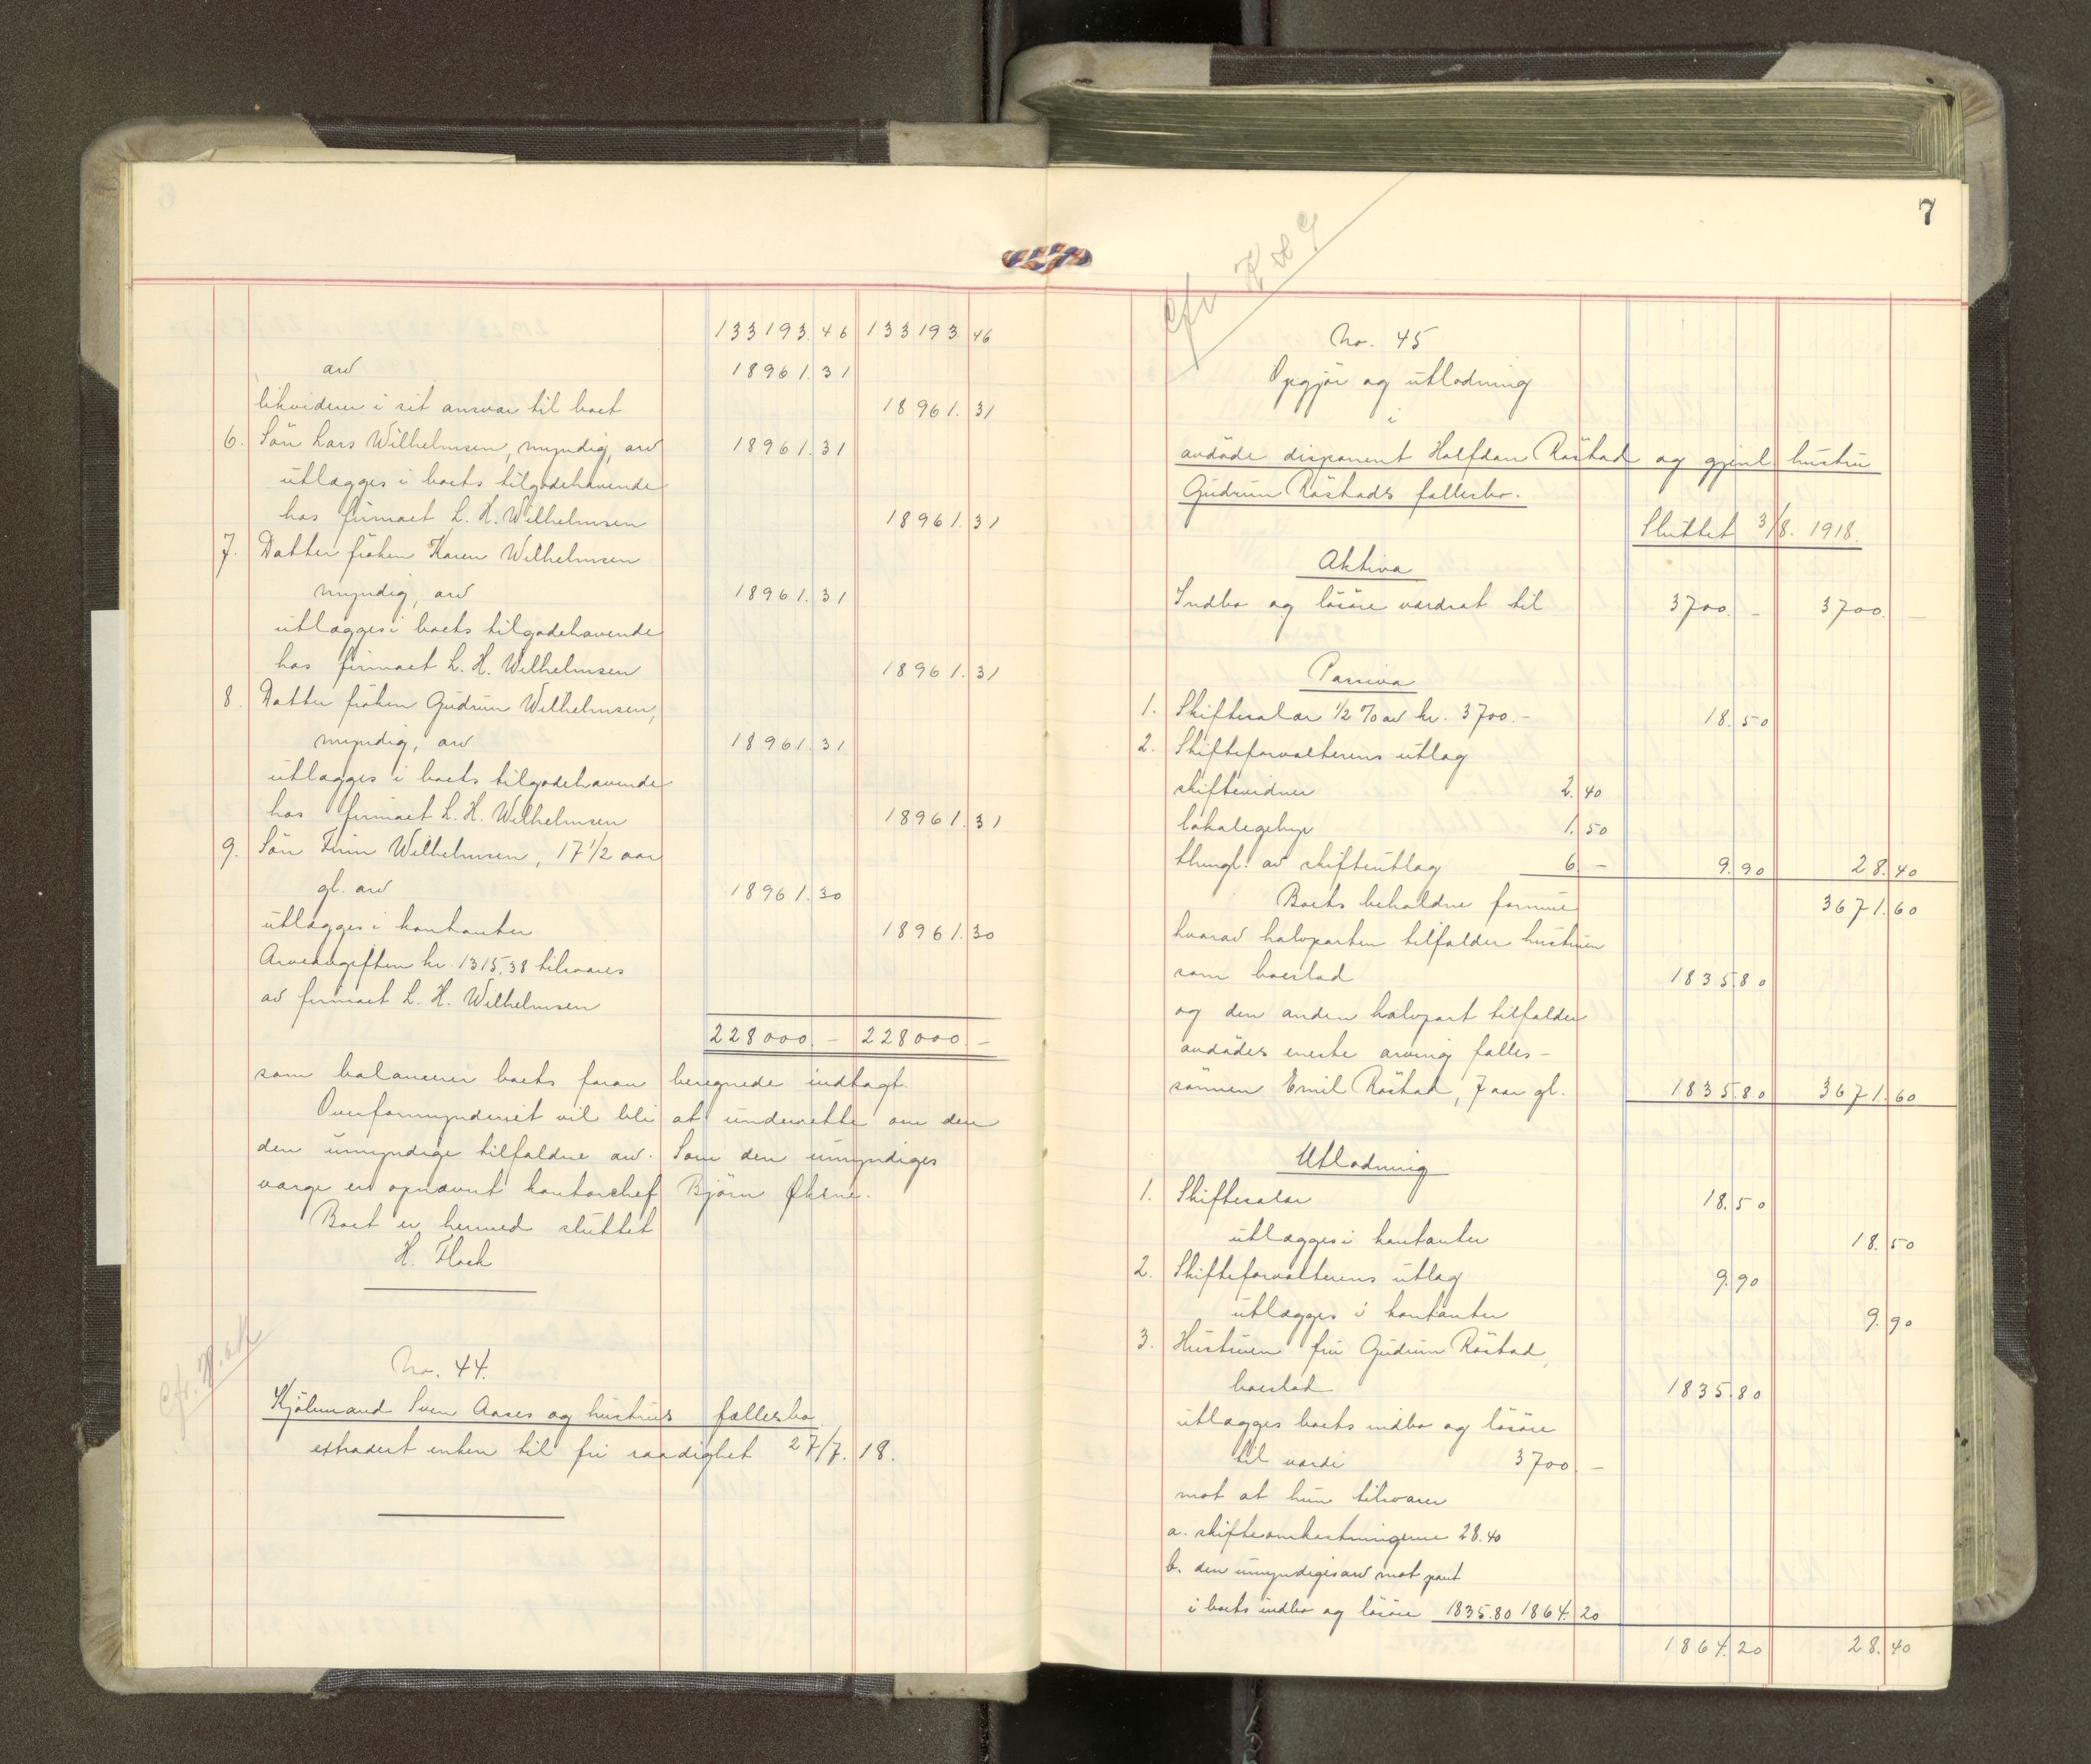 133193.46 133193.46
arv 18961.31
likviderer i sit ansvar til boet 18961.31
6. Sön Lars Wilhelmsen, myndig, arv 18961.31
utlægges i boets tilgodehavende
hos firmaet L. H. Wilhelmsen 18961.31
7. Datter fröken Karen Wilhelmsen
myndig, arv 18961.31
utlægges i boets tilgodehavende
hos firmaet L. H. Wilhelmsen 18961.31
8. Datter fröken Gudrun Wilhelmsen,
myndig, arv 18961.31
utlægges i boets tilgodehavende
hos firmaet L. H. Wilhelmsen 18961.31
9. Sön Finn Wilhelmsen, 17 1/2 aar
gl. arv 18961.30
utlægges i kontanter 18961.30
Arveavgiften kr. 1315.38 tilsvares
av firmaet L. H. Wilhelmsen
228000.- 228000.-
som balancerer boets foran beregnede indtægt.
Overformynderiet vil bli at underrette om den
den umyndige tilfaldne arv. Som den umyndiges
værge er opnævnt kontorchef Björn
Boet er hermed sluttet
H. Floch
cfr.
No. 44.
Kjölmand Sven Aases og hustrus fællesbo
extradert enken til fri raadighet 27/7. 18.
7
cfr
No. 45
Opgjör og utlodning
i
avdöde disponent Halfdan Röstad og gjenl. hustru
Gudrun Röstads fællesbo.
Sluttet 3/8. 1918.
Aktiva
Indbo og lösöre værdsat til 3700.- 3700.-
Passiva
1. Skiftesalær 1/2 % av kr. 3700.- 18.50
2. Skifteforvalterens utlæg
skiftevidner 2.40
lokalegebyr 1.50
thingl. av skifteutlæg 6.- 9.90 28.40
Boets beholdne formue 3671.60
hvorav halvparten tilfalder hustruen
som boeslod 1835.80
og den anden halvpart tilfalder
avdödes eneste arving fælles-
sönnen Emil Röstad, 7 aar gl. 1835.80 3671.60
Utlodning
1. Skiftesalær 18.50
utlægges i kontanter 18.50
2. Skifteforvalterens utlæg 9.90
utlægges i kontanter 9.90
3. Hustruen fru Gudrun Röstad,
boeslod 1835.80
utlægges boets indbo og lösöre
til værdi 3700.-
mot at hun tilsvarer
a. skifteomkostningerne 28.40
b. den umyndiges arv mot pant
i boets indbo og lösöre 1835.80 1864.20
1864.20 28.40